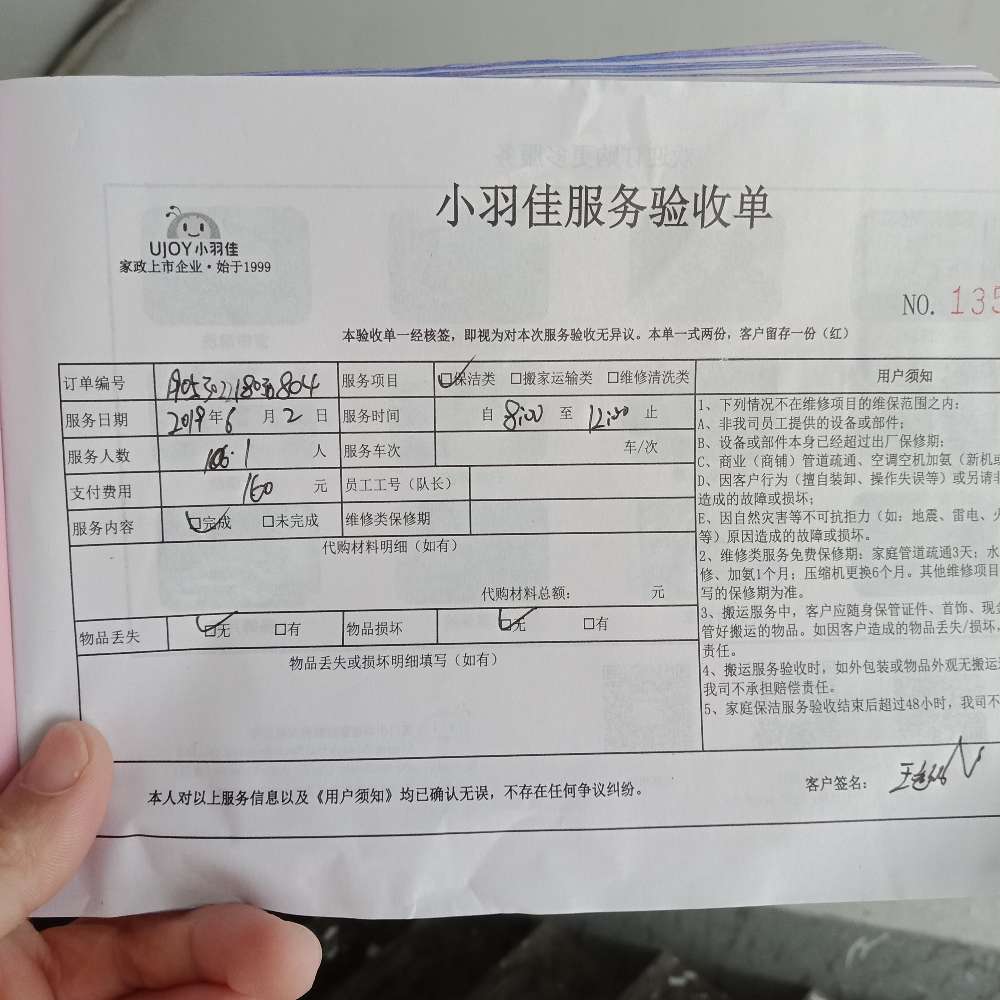 小羽佳服务验收单
UJOY小羽佳
家政上市企业·始于1999
NO. 135
本验收单一经核签，即视为对本次服务验收无异议。本单一式两份，客户留存一份（红）
订单编号 服务项目 □保洁类 □搬家运输类 □维修清洗类
服务日期 2019年6月2日 服务时间 自 8:00 至 12:00 止
服务人数 1 人 服务车次 车/次
支付费用 160 元 员工工号（队长）
服务内容 □完成 □未完成 维修类保修期
代购材料明细（如有）
代购材料总额： 元
物品丢失 □无 □有 物品损坏 □无 □有
物品丢失或损坏明细填写（如有）
用户须知
1、下列情况不在维修项目的维保范围之内：
A、非我司员工提供的设备或部件；
B、设备或部件本身已经超过出厂保修期；
C、商业（商铺）管道疏通、空调空机加氨（新机或
D、因客户行为（擅自装卸、操作失误等）或另请非
造成的故障或损坏；
E、因自然灾害等不可抗拒力（如：地震、雷电、火
等）原因造成的故障或损坏。
2、维修类服务免费保修期：家庭管道疏通3天；水
修、加氨1个月；压缩机更换6个月。其他维修项目
写的保修期为准。
3、搬运服务中，客户应随身保管证件、首饰、现金
管好搬运的物品。如因客户造成的物品丢失/损坏，
责任。
4、搬运服务验收时，如外包装或物品外观无搬运
我司不承担赔偿责任。
5、家庭保洁服务验收结束后超过48小时，我司不
本人对以上服务信息以及《用户须知》均已确认无误，不存在任何争议纠纷。
客户签名：